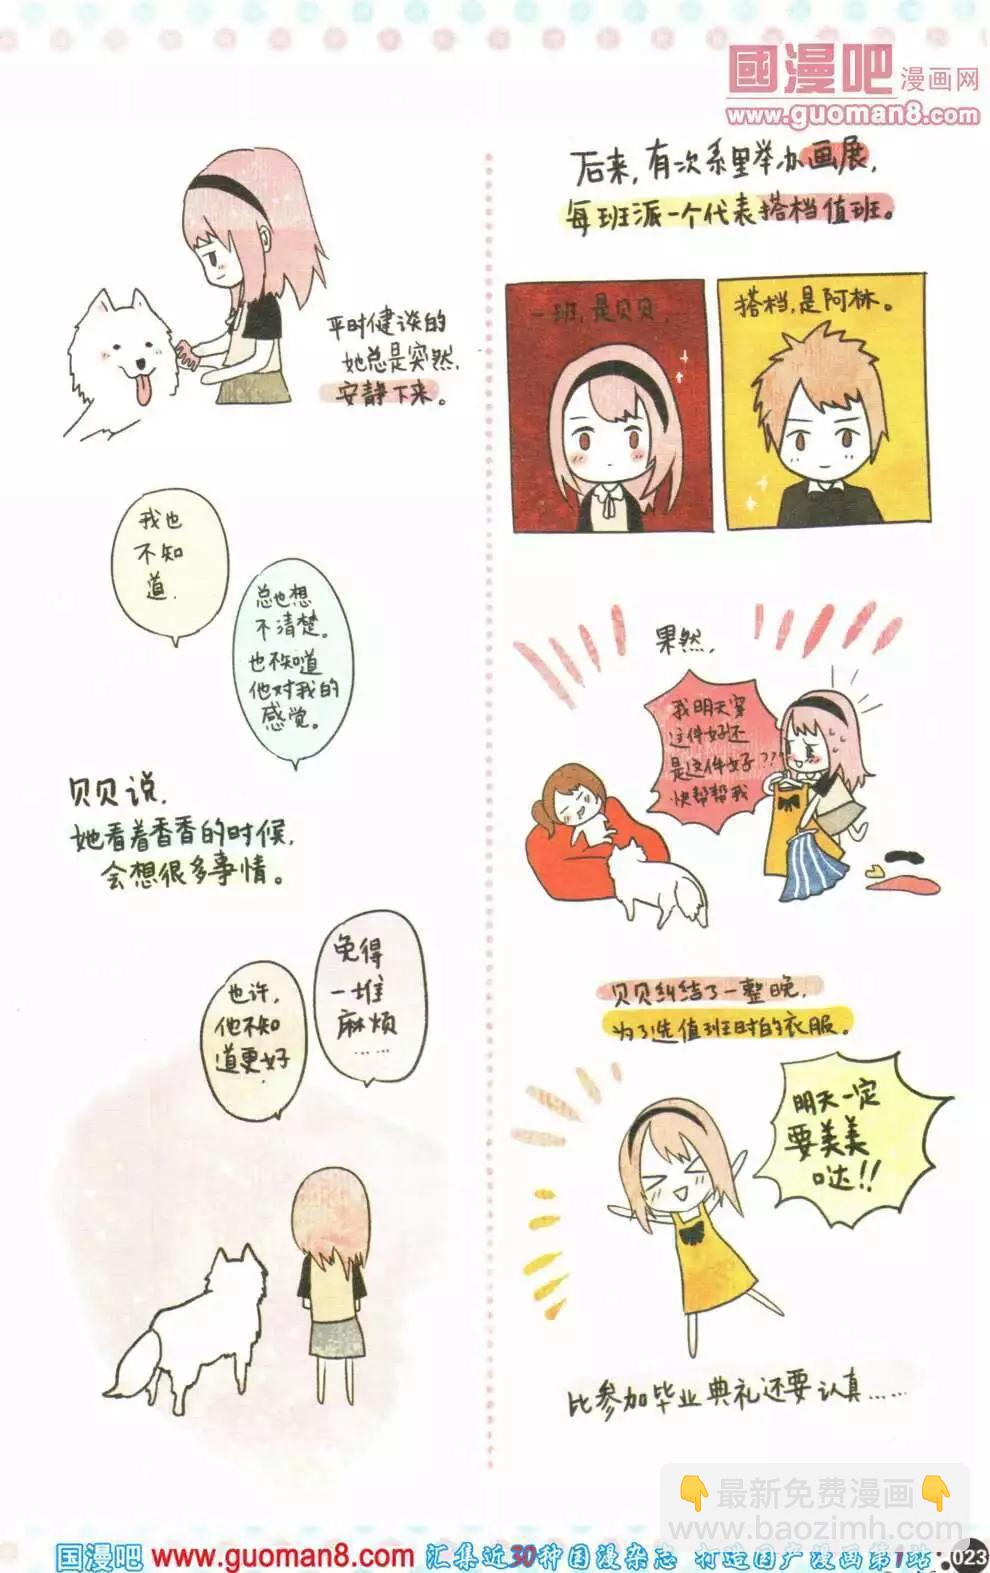 國漫吧 漫画网
www.guoman8.com
平时健谈的
她总是突然,
安静下来。
我也
不知
道.
总也想
不清楚。
也不知道
他对我的
感觉。
贝贝说,
她看着香香的时候,
会想很多事情。
免得
一堆
麻烦
……
也许,
他不知
道更好
后来,有次系里举办画展,
每班派一个代表搭档值班。
一班,是贝贝,
搭档,是阿林。
果然,
我明天穿
这件好还
是这件好???
快帮帮我
贝贝纠结了一整晚,
为了选值班时的衣服。
明天一定
要美美
哒!!
比参加毕业典礼还要认真……
👇最新免费漫画👇
www.baozimh.com
国漫吧 www.guoman8.com 汇集近30种国漫杂志 打造国产漫画第1站
023